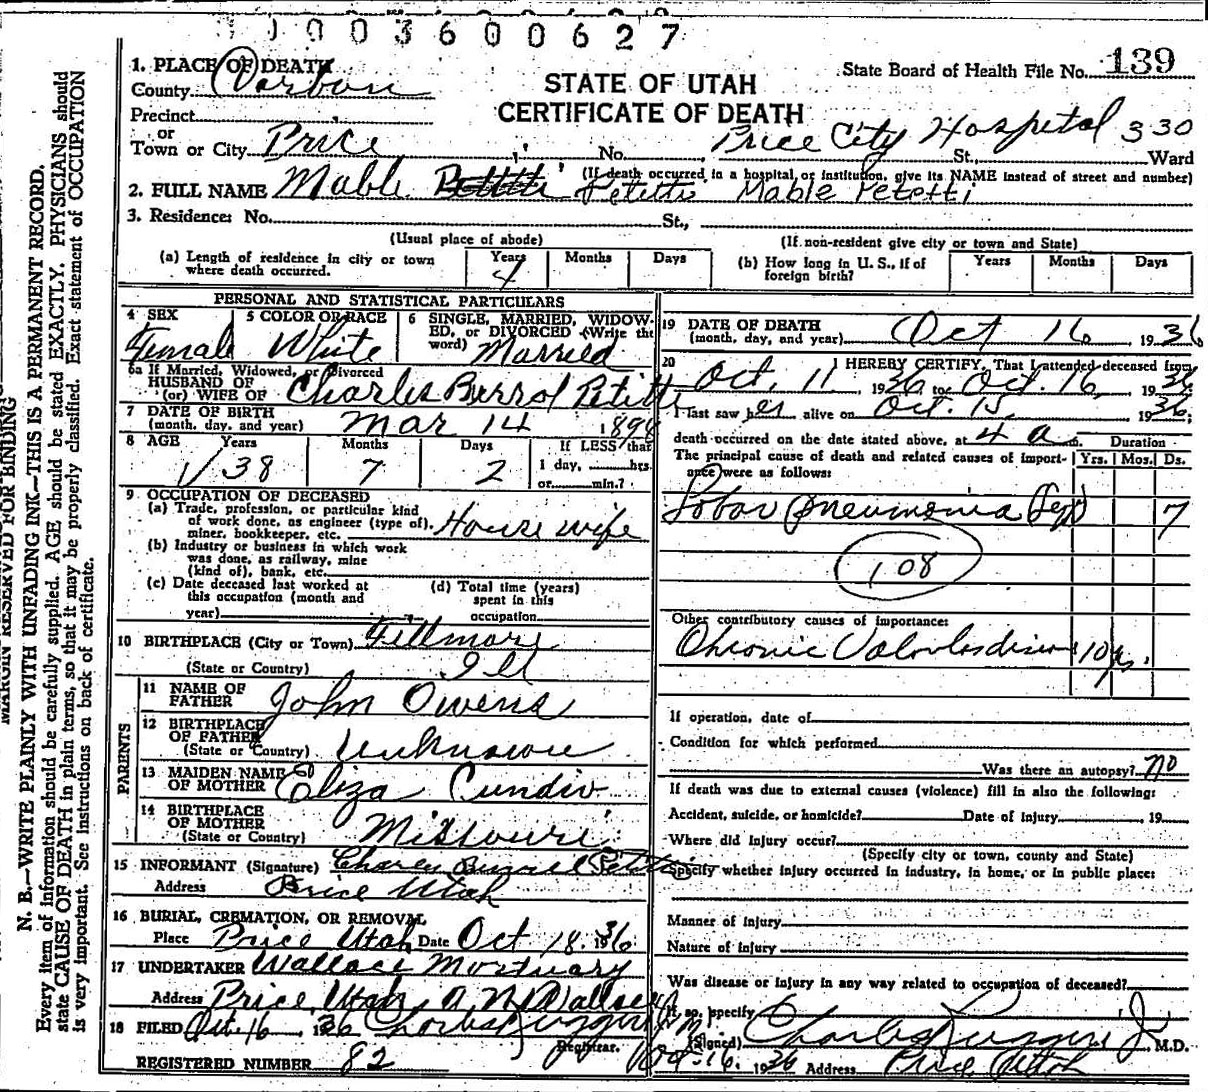 0003600627
1. PLACE OF DEATH
County Carbon
STATE OF UTAH
CERTIFICATE OF DEATH
State Board of Health File No. 139
Precinct
or
Town or City Price No. Price City Hospital 330 St., Ward
(If death occurred in a hospital or institution, give its NAME instead of street and number)
2. FULL NAME Mable Petetti Mable Petetti
3. Residence: No. St.,
(Usual place of abode) (If non-resident give city or town and State)
(a) Length of residence in city or town where death occurred. Years 4 Months Days
(b) How long in U. S., if of foreign birth? Years Months Days
PERSONAL AND STATISTICAL PARTICULARS
4 SEX Female
5 COLOR OR RACE White
6 SINGLE, MARRIED, WIDOWED, or DIVORCED (Write the word) Married
6a If Married, Widowed, or Divorced
HUSBAND OF
(or) WIFE OF Charles Burrol
7 DATE OF BIRTH
(month, day, and year) Mar 14 189
8 AGE Years 38 Months 7 Days 2 If LESS than 1 day, hrs. or min.?
9 OCCUPATION OF DECEASED
(a) Trade, profession, or particular kind of work done, as engineer (type of), miner, bookkeeper, etc. House wife
(b) Industry or business in which work was done, as railway, mine (kind of), bank, etc.
(c) Date deceased last worked at this occupation (month and year)
(d) Total time (years) spent in this occupation
10 BIRTHPLACE (City or Town) Fillmore
(State or Country) Ill
PARENTS
11 NAME OF FATHER John Owens
12 BIRTHPLACE OF FATHER (State or Country) Unknown
13 MAIDEN NAME OF MOTHER Eliza Cundiv
14 BIRTHPLACE OF MOTHER (State or Country) Missouri
15 INFORMANT (Signature) Charles Burrell
Address Price Utah
16 BURIAL, CREMATION, OR REMOVAL
Place Price Utah Date Oct 18. 1936
17 UNDERTAKER Wallace Mortuary
Address Price, Utah, A. N. Wallace
18 FILED Oct. 16 1936 Charles Ruggeri Registrar.
REGISTERED NUMBER 82
19 DATE OF DEATH
(month, day, and year) Oct 16 1936
20 I HEREBY CERTIFY, That I attended deceased from
Oct. 11 1936 to Oct. 16, 1936
I last saw her alive on Oct. 15, 1936
death occurred on the date stated above, at 4 a m. Duration
The principal cause of death and related causes of importance were as follows: Yrs. Mos. Ds.
Lobar pneumonia 7
108
Other contributory causes of importance:
Chronic 10 yrs.
If operation, date of
Condition for which performed
Was there an autopsy? no
If death was due to external causes (violence) fill in also the following:
Accident, suicide, or homicide? Date of injury 19
Where did injury occur?
(Specify city or town, county and State)
Specify whether injury occurred in industry, in home, or in public place:
Manner of injury
Nature of injury
Was disease or injury in any way related to occupation of deceased?
If so, specify
(Signed) Charles Ruggeri Jr M.D.
Oct. 16. 1936 Address Price Utah
MARGIN RESERVED FOR BINDING
N. B.—WRITE PLAINLY WITH UNFADING INK—THIS IS A PERMANENT RECORD.
Every item of information should be carefully supplied. AGE should be stated EXACTLY. PHYSICIANS should
state CAUSE OF DEATH in plain terms, so that it may be properly classified. Exact statement of OCCUPATION
is very important. See instructions on back of certificate.